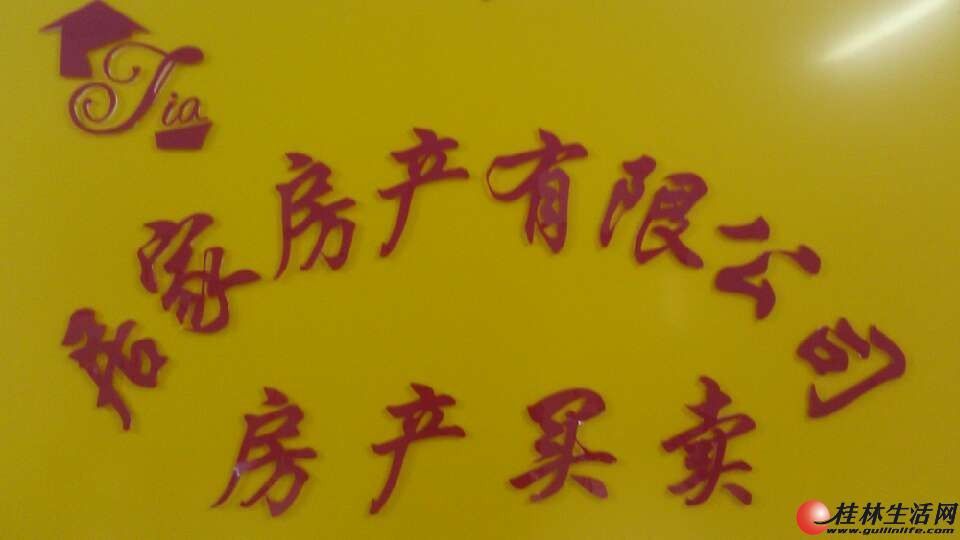 Jia
居家房产有限公司
房产买卖
桂林生活网
www.guilinlife.com